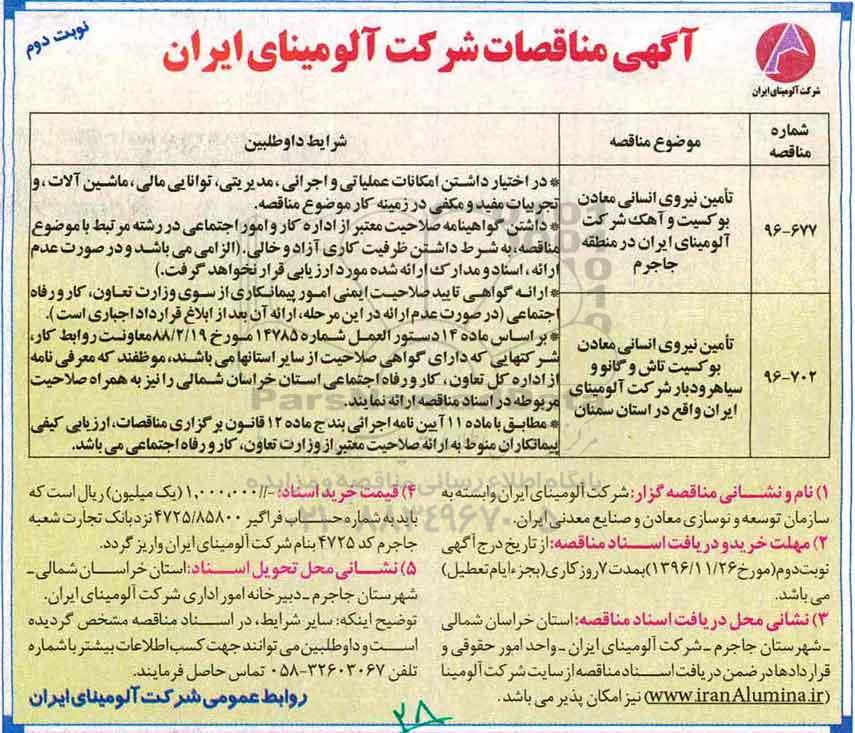 نوبت دوم
آگهی مناقصات شرکت آلومینای ایران
شرکت آلومینای ایران
شماره مناقصه
موضوع مناقصه
شرایط داوطلبین
۹۶-۶۷۷
تأمین نیروی انسانی معادن
بوکسیت و آهک شرکت
آلومینای ایران در منطقه
جاجرم
۹۶-۷۰۲
تأمین نیروی انسانی معادن
بوکسیت تاش و گانو و
سیاهرودبار شرکت آلومینای
ایران واقع در استان سمنان
* در اختیار داشتن امکانات عملیاتی و اجرائی، مدیریتی، توانایی مالی، ماشین آلات، و
تجربیات مفید و مکفی در زمینه کار موضوع مناقصه.
* داشتن گواهینامه صلاحیت معتبر از اداره کار و امور اجتماعی در رشته مرتبط با موضوع
مناقصه، به شرط داشتن ظرفیت کاری آزاد و خالی. (الزامی می باشد و در صورت عدم
ارائه، اسناد و مدارک ارائه شده مورد ارزیابی قرار نخواهد گرفت.)
* ارائه گواهی تایید صلاحیت ایمنی امور پیمانکاری از سوی وزارت تعاون، کار و رفاه
اجتماعی (در صورت عدم ارائه در این مرحله، ارائه آن بعد از ابلاغ قرارداد اجباری است).
* بر اساس ماده ۱۴ دستور العمل شماره ۱۴۷۸۵ مورخ ۸۸/۲/۱۹ معاونت روابط کار،
شرکتهایی که دارای گواهی صلاحیت از سایر استانها می باشند، موظفند که معرفی نامه
از اداره کل تعاون، کار و رفاه اجتماعی استان خراسان شمالی را نیز به همراه صلاحیت
مربوطه در اسناد مناقصه ارائه نمایند.
* مطابق با ماده ۱۱ آیین نامه اجرائی بند ج ماده ۱۲ قانون برگزاری مناقصات، ارزیابی کیفی
پیمانکاران منوط به ارائه صلاحیت معتبر از وزارت تعاون، کار و رفاه اجتماعی می باشد.
۱) نام و نشانی مناقصه گزار: شرکت آلومینای ایران وابسته به
سازمان توسعه و نوسازی معادن و صنایع معدنی ایران.
۲) مهلت خرید و دریافت اسناد مناقصه: از تاریخ درج آگهی
نوبت دوم (مورخ ۱۳۹۶/۱۱/۲۶) بمدت ۷ روز کاری (بجزء ایام تعطیل)
می باشد.
۳) نشانی محل دریافت اسناد مناقصه: استان خراسان شمالی
- شهرستان جاجرم - شرکت آلومینای ایران - واحد امور حقوقی و
قراردادها در ضمن دریافت اسناد مناقصه از سایت شرکت آلومینا
(www.iranAlumina.ir) نیز امکان پذیر می باشد.
۴) قیمت خرید اسناد: -//۱,۰۰۰,۰۰۰ (یک میلیون) ریال است که
باید به شماره حساب فراگیر ۴۷۲۵/۸۵۸۰۰ نزد بانک تجارت شعبه
جاجرم کد ۴۷۲۵ بنام شرکت آلومینای ایران واریز گردد.
۵) نشانی محل تحویل اسناد: استان خراسان شمالی -
شهرستان جاجرم - دبیرخانه امور اداری شرکت آلومینای ایران.
توضیح اینکه: سایر شرایط، در اسناد مناقصه مشخص گردیده
است و داوطلبین می توانند جهت کسب اطلاعات بیشتر با شماره
تلفن ۳۲۶۰۳۰۶۷-۰۵۸ تماس حاصل فرمایند.
روابط عمومی شرکت آلومینای ایران
۲۸
پایگاه اطلاع رسانی مناقصه و مزایده